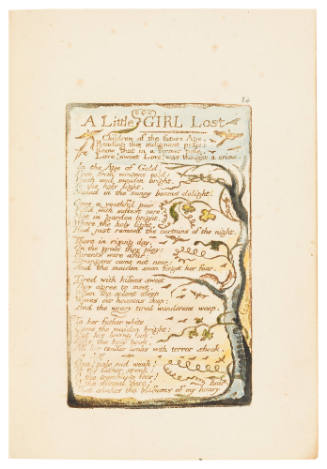 A Little GIRL Lost
Children of the future Age,
Reading this indignant page:
Know that in a former time,
Love! sweet Love! was thought a crime.
In the Age of Gold,
Free from winters cold:
Youth and maiden bright,
To the holy light,
Naked in the sunny beams delight.
Once a youthful pair
Fill'd with softest care:
Met in garden bright,
Where the holy light,
Had just removd the curtains of the night.
There in rising day,
On the grass they play:
Parents were afar:
Strangers came not near:
And the maiden soon forgot her fear.
Tired with kisses sweet
They agree to meet,
When the silent sleep
Waves o'er heavens deep:
And the weary tired wanderers weep.
To her father white
Came the maiden bright:
But his loving look,
Like the holy book,
tender limbs with terror shook.
Ona! pale and weak!
To thy father speak:
O the trembling fear!
O the dismal care!
That shakes the blossoms of my hoary hair